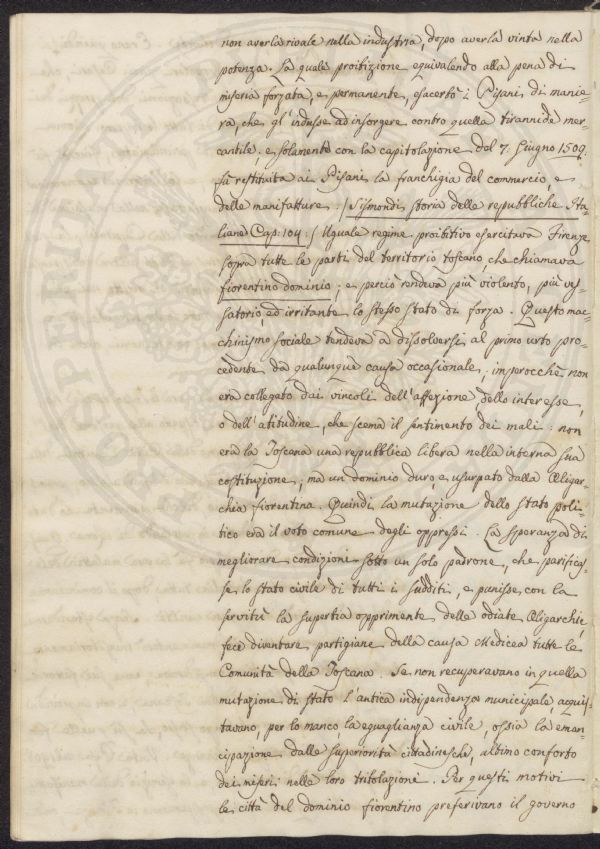 non averla rivale nella industria, dopo averla vinta nella
potenza. La quale proibizione equivalendo alla pena di
miseria forzata, e permanente, esacerbò i Pisani di manie-
ra, che gl'indusse ad insorgere contro quella tirannide mer-
cantile; e solamente con la capitolazione del 7. Giugno 1509.
fù restituita ai Pisani la franchigia del commercio, e
delle manifatture /Sismondi storia delle repubbliche Ita-
liane Cap: 104:/ Uguale regime proibitivo esercitava Firenze
sopra tutte le parti del territorio toscano, che chiamava
fiorentino dominio, e perciò rendeva più violento, più ves-
satorio, ed irritante lo stesso stato di forza. Questo mac-
chinismo sociale tendeva a dissolversi al primo urto pro-
cedente da qualunque causa occasionale; imperocchè non
era collegato dai vincoli dell'affezione, dello interesse,
o dell'atitudine, che scema il sentimento dei mali: non
era la Toscana una repubblica libera nella interna sua
costituzione; ma un dominio duro, e usurpato dalla Oligar-
chia fiorentina. Quindi la mutazione dello stato poli-
tico era il voto comune degli oppressi. La speranza di
megliorare condizioni sotto un solo padrone, che parificas-
se lo stato civile di tutti i sudditi, e punisse con la
servitù la superbia opprimente della odiate Oligarchie,
fece diventare partigiane della causa Medicea tutte le
Comunità della Toscana. Se non recuperavano in quella
mutazione di stato l'antica indipendenza municipale, acquis-
tavano, per lo manco, la eguaglianza civile, ossia la eman-
cipazione dalle superiorità cittadinesche, ultimo conforto
dei miseri nelle loro tribolazioni. Per questi motivi
le città del dominio fiorentino preferivano il governo